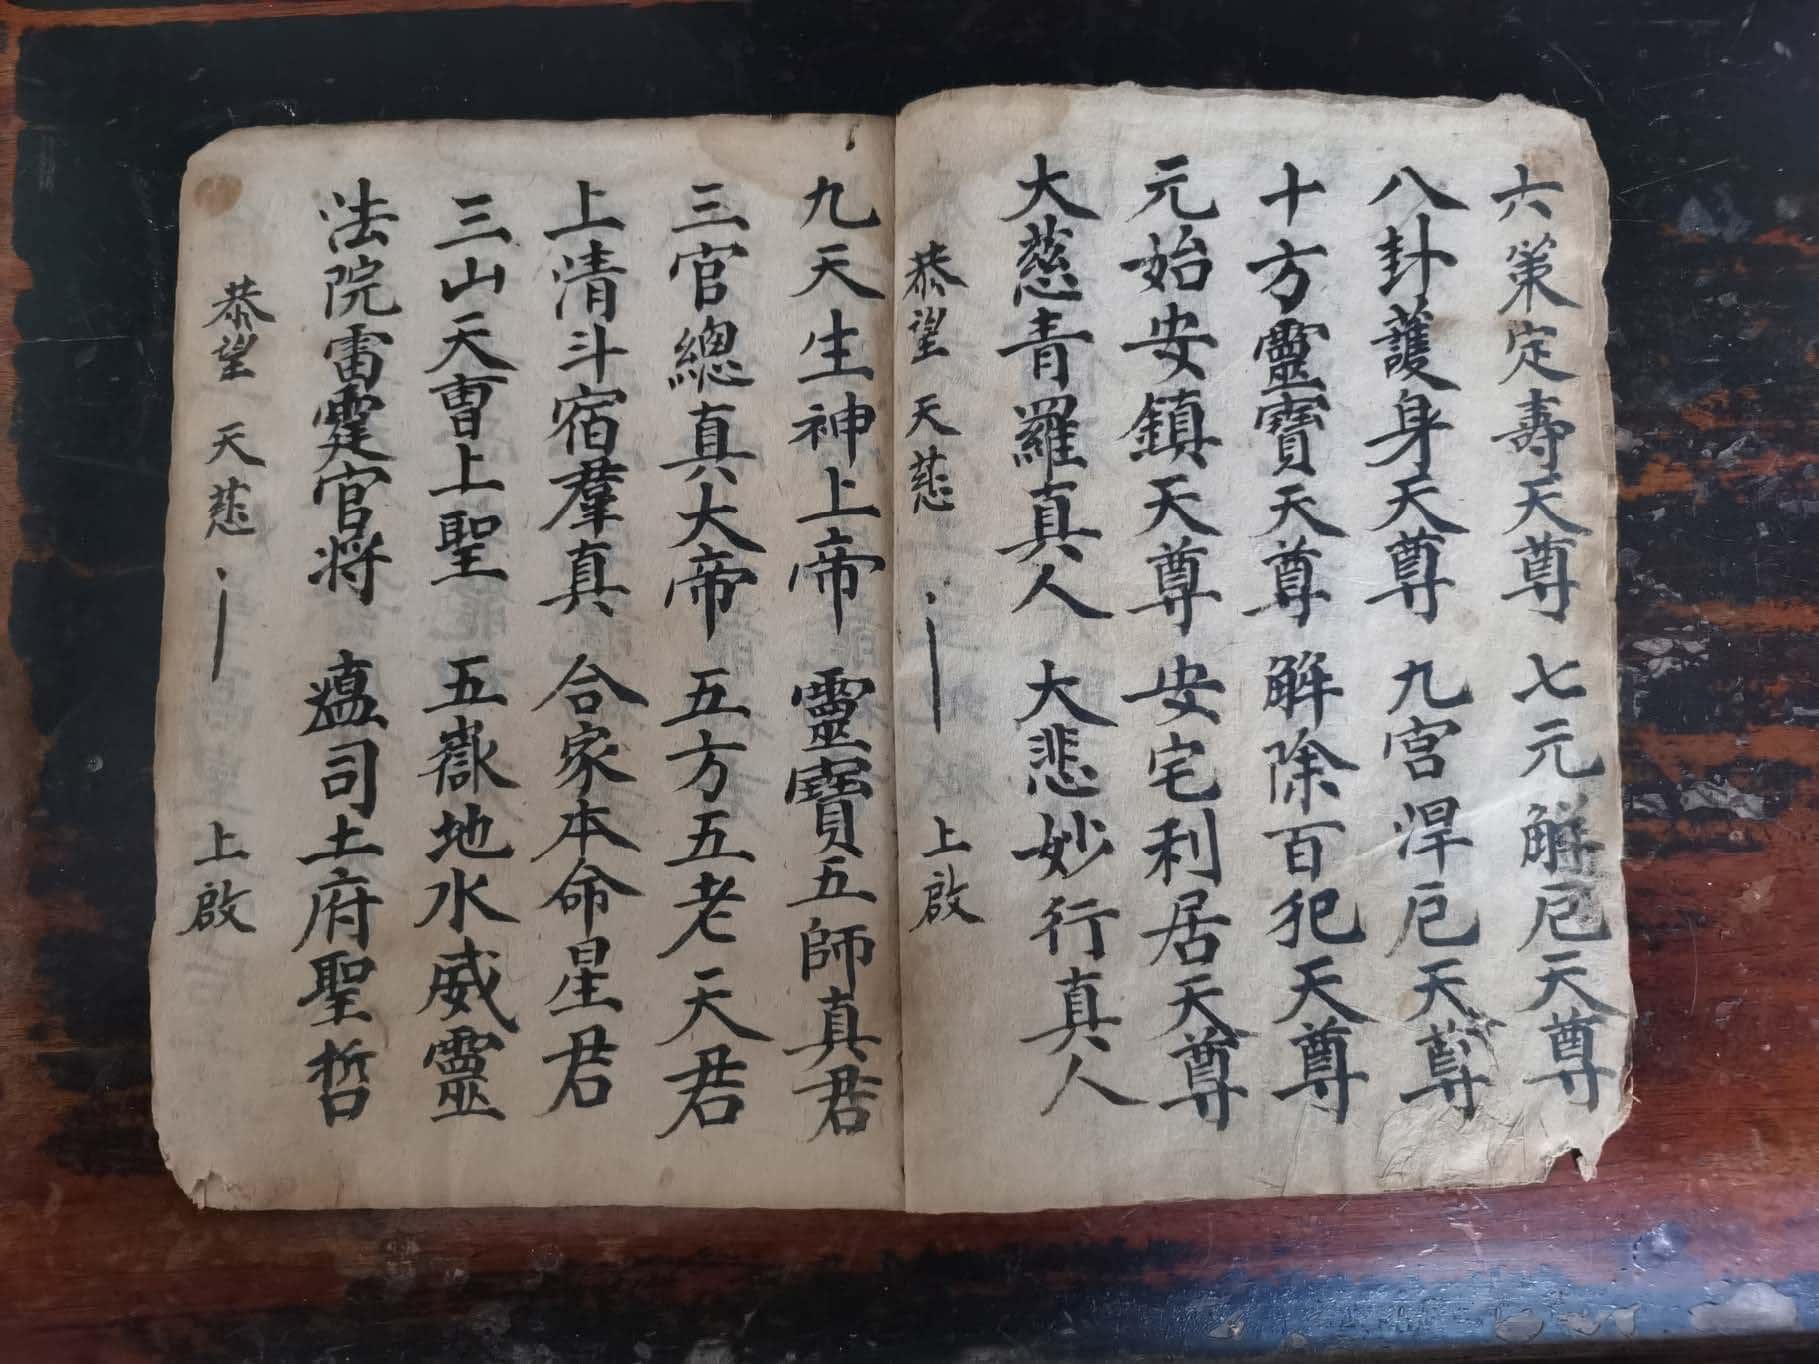 六策定壽天尊 七元解厄天尊
八卦護身天尊 九宮捍厄天尊
十方靈寶天尊 解除百犯天尊
元始安鎮天尊 安宅利居天尊
大慈青羅真人 大悲妙行真人
恭望 天慈 上啟
九天生神上帝 靈寶五師真君
三官總真大帝 五方五老天君
上清斗宿羣真 合家本命星君
三山天曹上聖 五嶽地水威靈
法院雷霆官將 瘟司土府聖哲
恭望 天慈 上啟